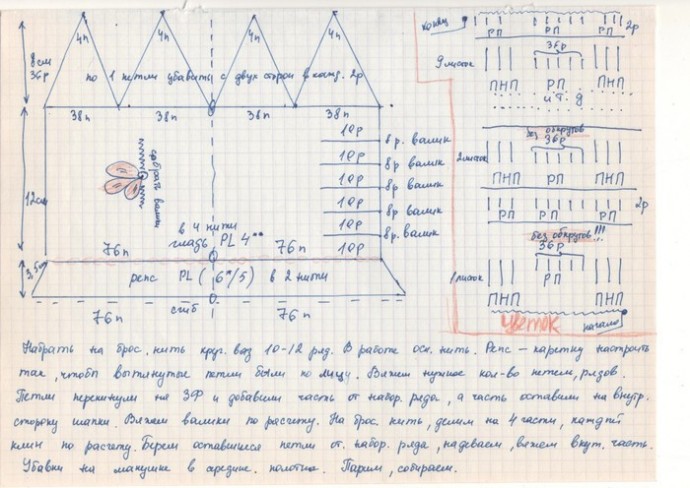 8см 36р
4п 4п 4п 4п
по 1 петли убавить с двух сторон в кажд. 2р
38п 38п 38п 38п
10р
8р. валик
10р
8р валик
10р
8р валик
10р
8р валик
10р
8р. валик
10р
12см
собрать валик
в 4 нити
гладь PL 4°°
76п 76п
3,5см
репс PL ( 6°/5) в 2 нити
сгиб
76п 76п
конец
РП РП 2р
36р
9 лист
ПНП РП ПНП
и т. д
без обкрутов
36р
2 лист
ПНП РП ПНП
РП РП РП 2р
без обкрутов!!!
36р
1 лист
РП
ПНП ПНП
Цветок
начало
Набрать на брос. нить круг. вяз 10-12 ряд. В работе осн. нить. Репс – каретку настроить
так, чтобы вытянутые петли были по лицу. Вяжем нужное кол-во петель, рядов.
Петли перекинули на ЗФ и добавили часть от набор. ряда, а часть оставили на внутр.
сторону шапки. Вяжем валики по расчету. На брос. нить, делим на 4 части, каждый
клин по расчету. Берем оставшиеся петли от. набор. ряда, надеваем, вяжем внут. часть.
Убавки на макушке в середине полотна. Парим, собираем.